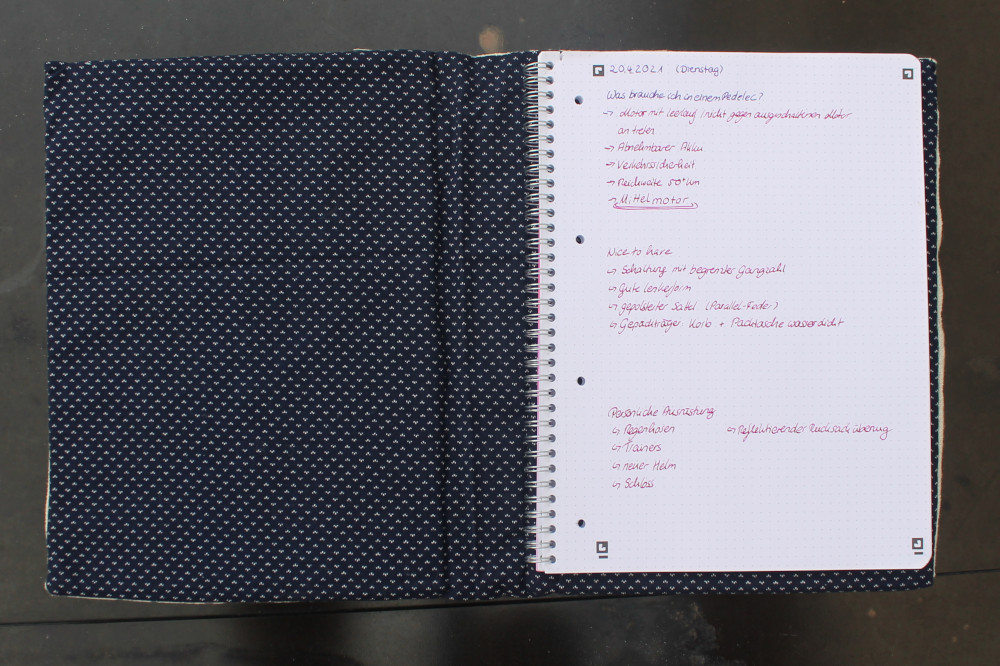 20.4.2021 (Dienstag)
Was brauche ich in einem Pedelec?
↳ Motor mit Leerlauf / nicht gegen ausgeschalteten Motor
an treten
→ Abnehmbarer Akku
→ Verkehrssicherheit
→ Reichweite 50+ km
↳ Mittelmotor
Nice to have
↳ Schaltung mit begrenzter Gangzahl
↳ Gute Lenkerform
↳ gepolsterter Sattel (Parallel-Feder)
↳ Gepäckträger Korb + Packtasche wasserdicht
Persönliche Ausrüstung
↳ Regenhosen ↳ Reflektierender Rucksack überzug
↳ Trainers
↳ neuer Helm
↳ Schloss